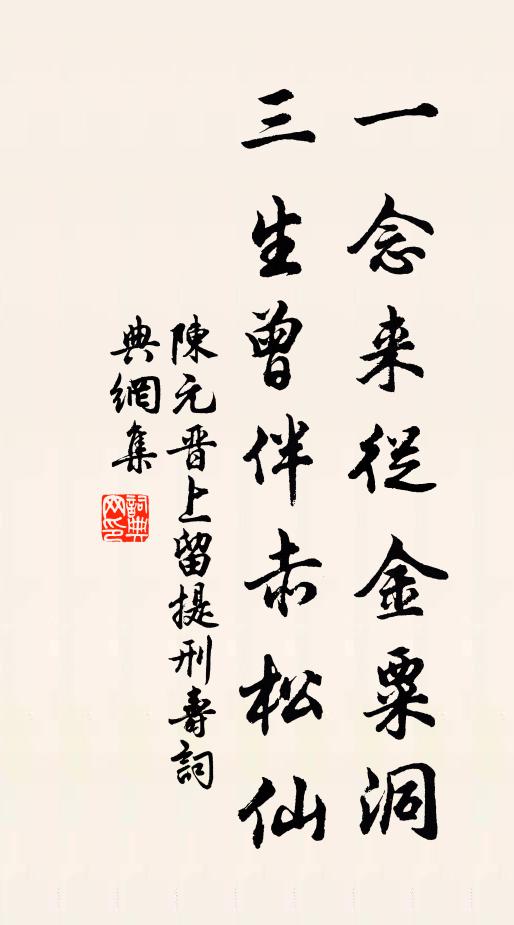 一念来從金粟洞
三生曾伴赤松仙
陳元晋上留提刑壽詞
典網集
詞典网印